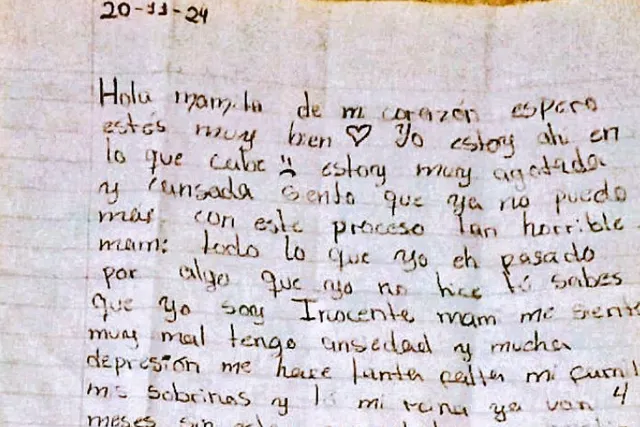 20-11-24
Hola mamita de mi corazón espero
estés muy bien ♡ Yo estoy ahi en
lo que cabe :( estoy muy agotada
y cansada siento que ya no puedo
mas con este proceso tan horrible
mami todo lo que yo eh pasado
por algo que yo no hice tú sabes
que yo soy Inocente mam me siento
muy mal tengo ansedad y mucha
depresión me hace tanta falta mi famil
mis sobrinas y mi ya van 4
meses sin